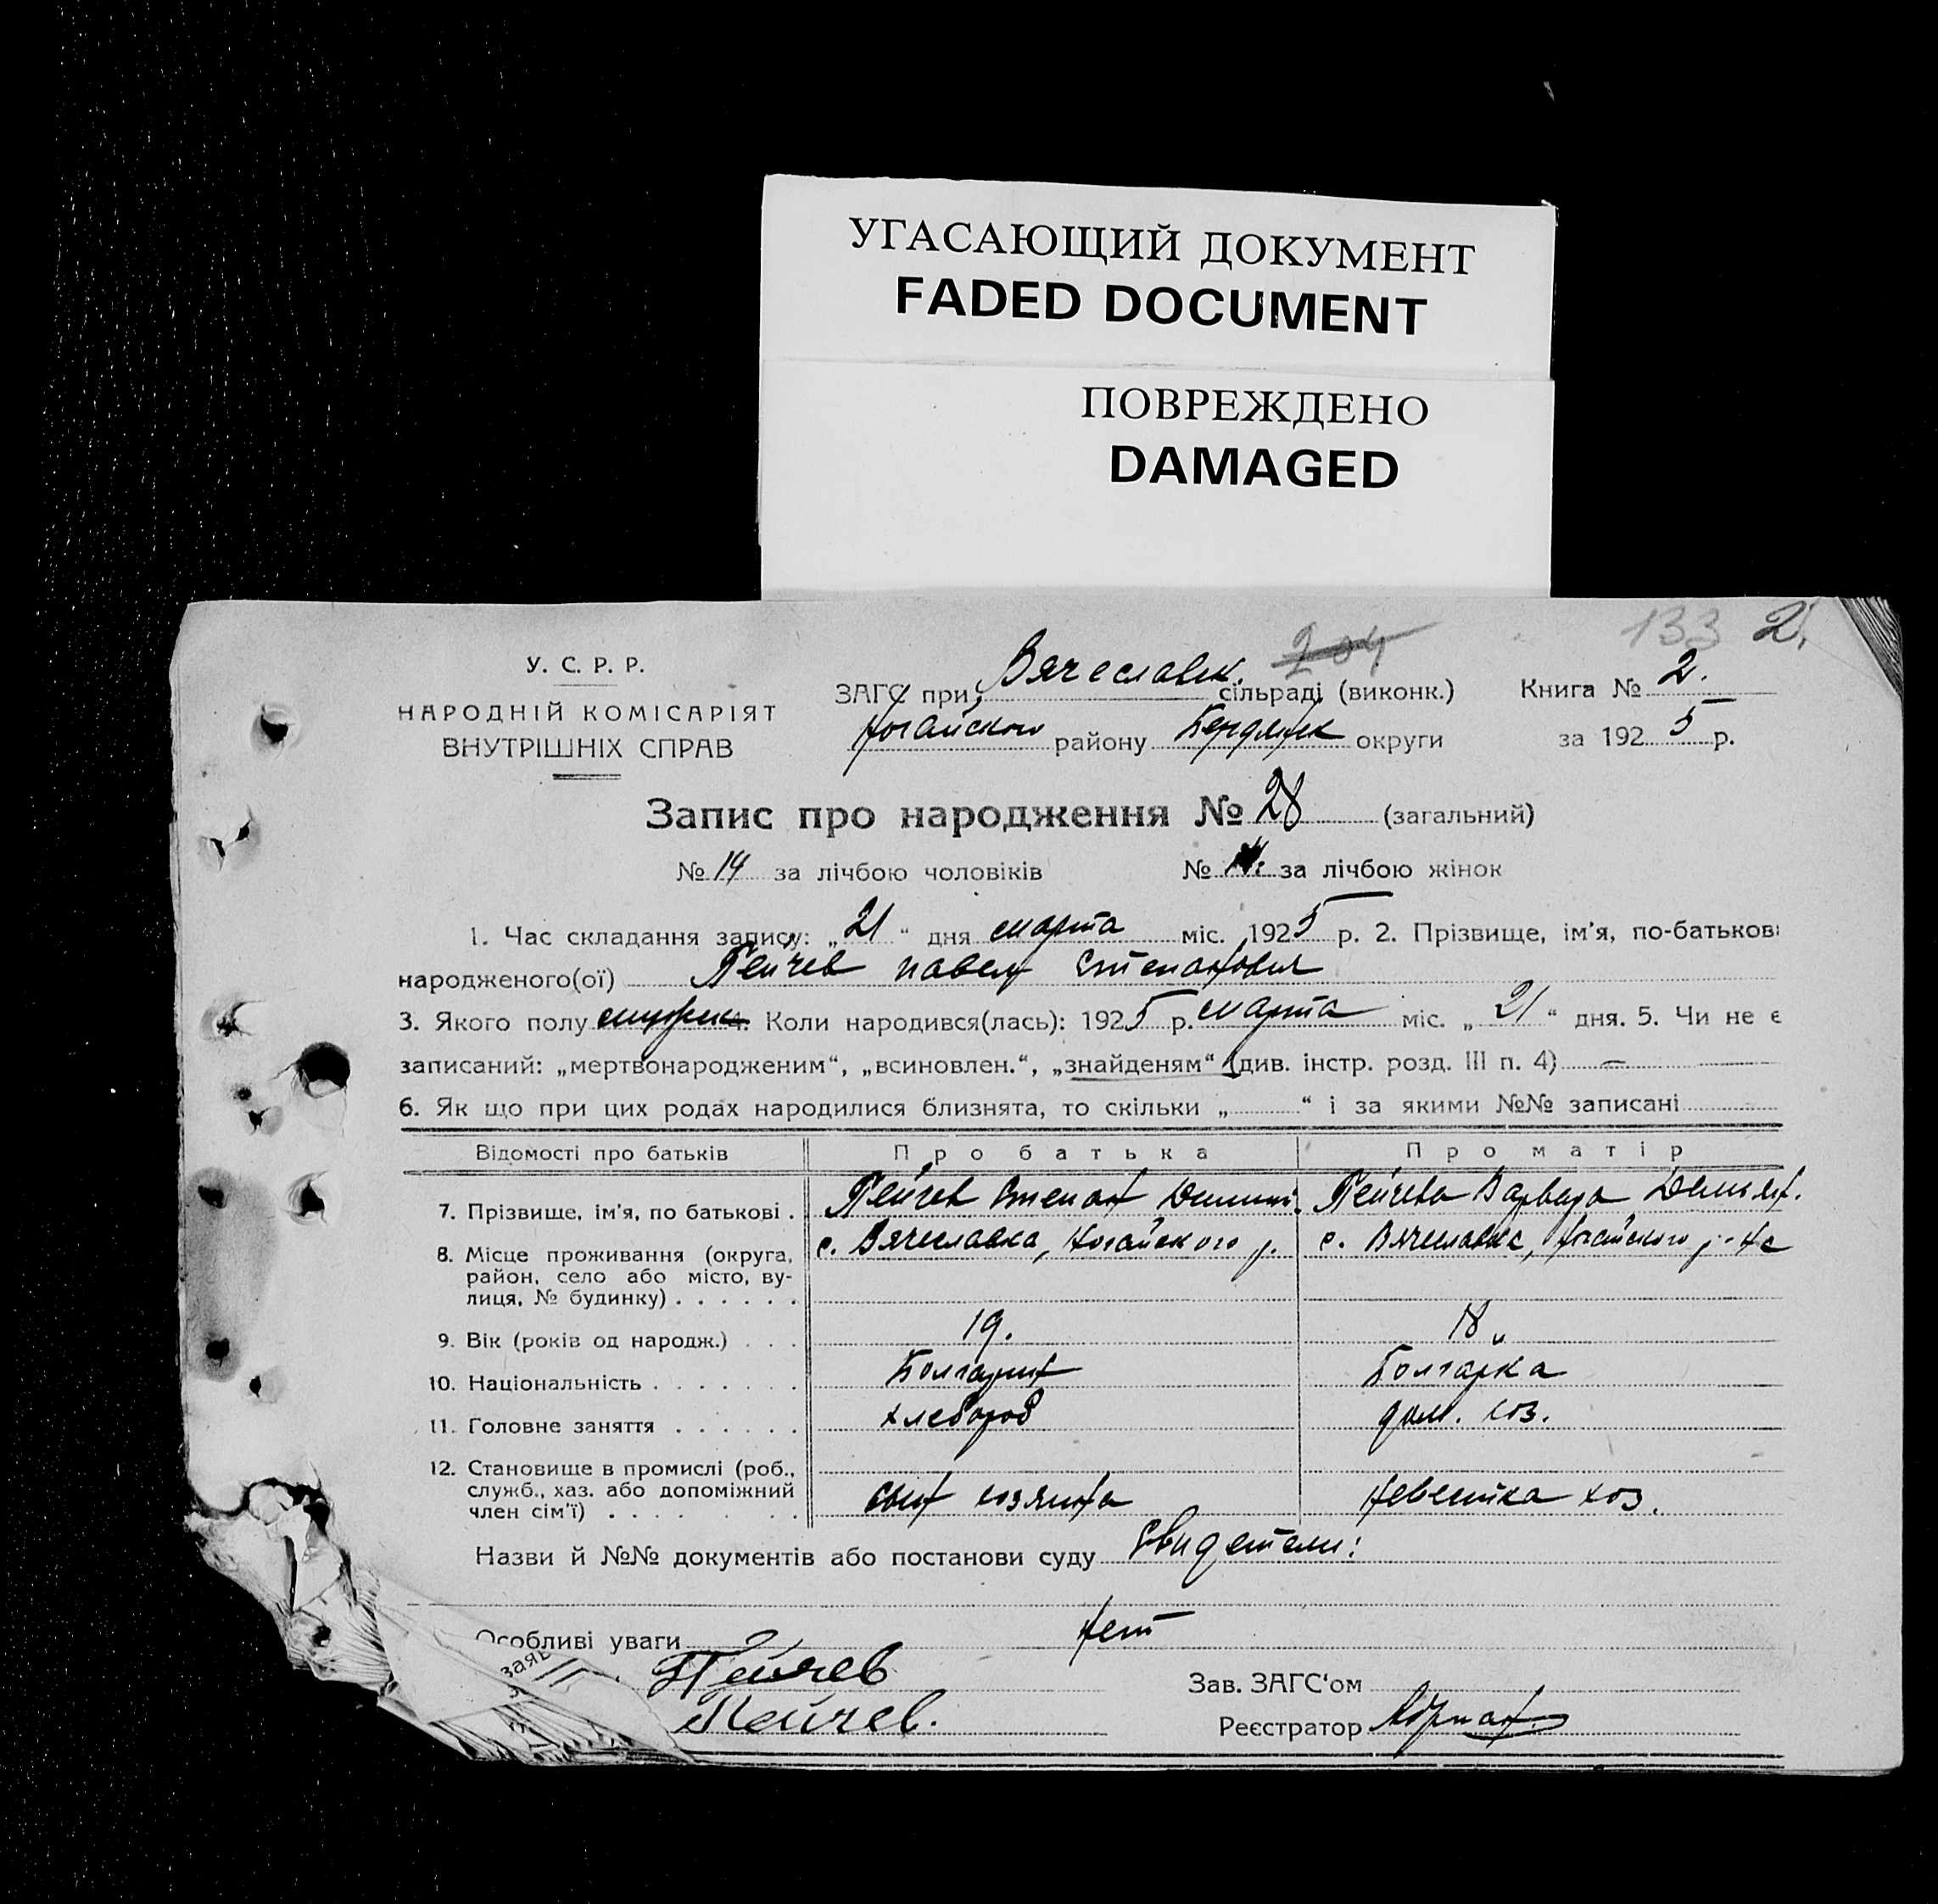 УГАСАЮЩИЙ ДОКУМЕНТ
FADED DOCUMENT
ПОВРЕЖДЕНО
DAMAGED
204 133 2.
У. С. Р. Р.
НАРОДНІЙ КОМІСАРІЯТ
ВНУТРІШНІХ СПРАВ
ЗАГС при Вячеславск. сільраді (виконк.) Книга № 2.
Ногайского району Бердянск округи за 1925 р.
Запис про народження № 28 (загальний)
№ 14 за лічбою чоловіків № за лічбою жінок
1. Час складання запису: „21“ дня марта міс. 1925 р. 2. Прізвище, ім'я, по-батькові
народженого(ої) Пейчев Павел Степанович
3. Якого полу мужск. Коли народився(лась): 1925 р. марта міс. „21“ дня. 5. Чи не є
записаний: „мертвонародженим“, „всиновлен.“, „знайденям“ (див. інстр. розд. III п. 4) —
6. Як що при цих родах народилися близнята, то скільки „ “ і за якими №№ записані
Відомості про батьків Про батька Про матір
7. Прізвище, ім'я, по батькові . Пейчев Степан Пейчева Варвара Демьян.
8. Місце проживання (округа, с. Вячеславка, Ногайского р. с. Вячеславка, Ногайского р-на
район, село або місто, ву-
лиця, № будинку) . . . . . .
9. Вік (років од народж.) . . . 19. 18 „
10. Національність . . . . . . . Болгарин Болгарка
11. Головне заняття . . . . . . хлебороб дом. хоз.
12. Становище в промислі (роб.,
служб., хаз. або допоміжний сын хозяина невестка хоз.
член сім'ї) . . . . . . .
Назви й №№ документів або постанови суду Свидетели:
Особливі уваги нет
заяв Пейчев Зав. ЗАГС'ом
Пейчев. Реєстратор